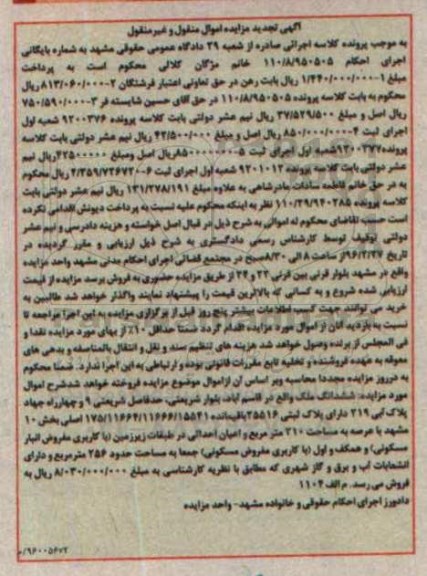 آگهی تجدید مزایده اموال منقول و غیرمنقول
به موجب پرونده کلاسه اجرائی صادره از شعبه ۲۹ دادگاه عمومی حقوقی مشهد به شماره بایگانی
اجرای احکام ۱۱۰/۸/۹۵۰۵۰۵ خانم مژگان کلالی محکوم است به پرداخت
مبلغ ۱-۱/۴۴۰/۰۰۰/۰۰۰ ریال بابت رهن در حق تعاونی اعتبار فرشتگان ۲-۸۱۳/۰۶۰/۰۰۰ ریال
محکوم به بابت کلاسه پرونده ۱۱۰/۸/۹۵۰۵۰۵ در حق آقای حسین شایسته فر ۳-۷۵۰/۵۹۰/۰۰۰
ریال اصل و مبلغ ۳۷/۵۲۹/۵۰۰ ریال نیم عشر دولتی بابت کلاسه پرونده ۹۲۰۰۳۷۶ شعبه اول
اجرای ثبت ۴-۸۵۰/۰۰۰/۰۰۰ ریال اصل و مبلغ ۴۲/۵۰۰/۰۰۰ ریال نیم عشر دولتی بابت کلاسه
پرونده ۹۲۰۰۳۷۷ شعبه اول اجرای ثبت ۵-۸۵۰۰۰۰۰۰۰ ریال اصل ومبلغ ۴۲۵۰۰۰۰۰ ریال نیم
عشر دولتی بابت کلاسه پرونده ۹۲۰۱۰۱۲ شعبه اول اجرای ثبت ۶-۲/۳۵۹/۷۲۶۷۲۰ ریال محکوم
به در حق خانم فاطمه سادات مادرشاهی به علاوه مبلغ ۱۳۱/۲۷۸/۱۹۱ ریال نیم عشر دولتی بابت
کلاسه پرونده ۱۱۰/۲۹/۹۴۰۲۸۵ نظر به اینکه محکوم علیه نسبت به پرداخت دیونش اقدامی نکرده
است حسب تقاضای محکوم له اموالی به شرح ذیل در قبال اصل خواسته و هزینه دادرسی و نیم عشر
دولتی توقیف توسط کارشناس رسمی دادگستری به شرح ذیل ارزیابی و مقرر گردیده در
تاریخ ۹۶/۲/۲۷ از ساعت ۸ الی ۸/۳۰ صبح در مجتمع قضائی اجرای احکام مدنی مشهد واحد مزایده
واقع در مشهد بلوار قرنی بین قرنی ۲۲ و ۲۴ از طریق مزایده حضوری به فروش برسد مزایده از قیمت
ارزیابی شده شروع و به کسانی که بالاترین قیمت را پیشنهاد نمایند واگذار خواهد شد طالبین به
خرید می توانند جهت کسب اطلاعات بیشتر پنج روز قبل از برگزاری مزایده به این اجرا مراجعه تا
نسبت به بازدید آنان از اموال مورد مزایده اقدام گردد ضمنا حداقل ۱۰٪ از بهای مورد مزایده نقدا و
فی المجلس از برنده وصول خواهد شد هزینه های تنظیم سند و نقل و انتقال بالمناصفه و بدهی های
معوقه به عهده فروشنده و تخلیه تابع مقررات قانونی بوده و ارتباطی به این اجرا ندارد. ضمنا محکوم
به درروز مزایده مجددا محاسبه وبر اساس آن ازاموال موضوع مزایده فروخته خواهد شد شرح اموال
مورد مزایده: ششدانگ ملک واقع در قاسم آباد، بلوار شریعتی، حدفاصل شریعتی ۹ و چهارراه جهاد
پلاک آبی ۲۱۹ دارای پلاک ثبتی ۲۵۵۱۶ باقیمانده ۱۷۵/۱۱۶۶۴/۱۱۶۶۶/۱۵۵۴۱ اصلی بخش ۱۰
مشهد با عرصه به مساحت ۲۱۰ متر مربع و اعیان احداثی در طبقات زیرزمین (با کاربری مفروض انبار
مسکونی) و همکف و اول (با کاربری مفروض مسکونی) جمعا به مساحت حدود ۲۵۶ مترمربع و دارای
انشعابات آب و برق و گاز شهری که مطابق با نظریه کارشناسی به مبلغ ۸/۰۳۰/۰۰۰/۰۰۰ ریال به
فروش می رسد. م الف ۱۱۰۴
دادورز اجرای احکام حقوقی و خانواده مشهد - واحد مزایده
۹۶۰۰۵۶۷۲/م